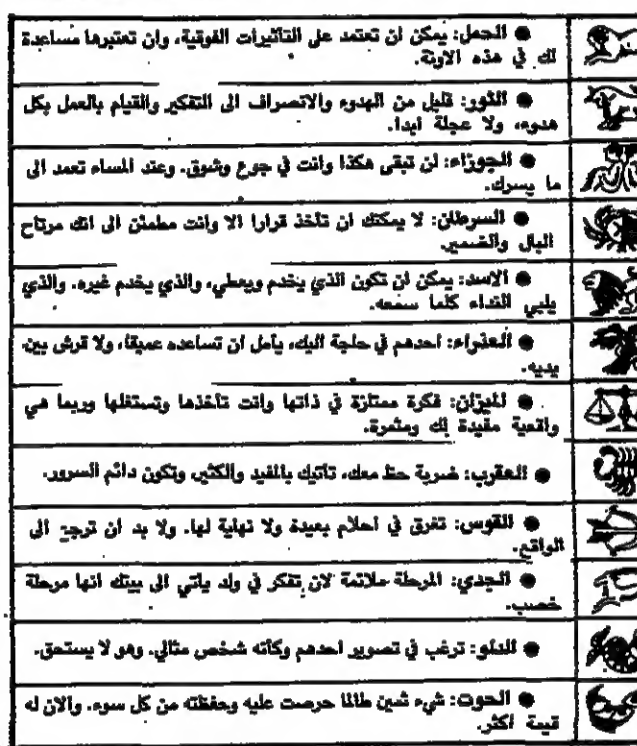 ● الحمل: يمكن ان تعتمد على التأثيرات الفوقية، وان تعتبرها مساعدة
لك في هذه الاونة.
● الثور: قليل من الهدوء والانصراف الى التفكير والقيام بالعمل بكل
هدوء، ولا عجلة ابدا.
● الجوزاء: لن تبقى هكذا وانت في جوع وشوق. وعند المساء تعمد الى
ما يسرك.
● السرطان: لا يمكنك ان تأخذ قرارا الا وانت مطمئن الى انك مرتاح
البال والضمير.
● الاسد: يمكن ان تكون الذي يخدم ويعطي، والذي يخدم غيره. والذي
يلبي النداء كلما سمعه.
● العذراء: احدهم في حاجة اليك، يأمل ان تساعده عميقا، ولا قرش بين
يديه.
● الميزان: فكرة ممتازة في ذاتها وانت تأخذها وتستغلها وربما هي
واقعية مفيدة لك ومثمرة.
● العقرب: ضربة حظ معك، تأتيك بالمفيد والكثير، وتكون دائم السرور.
● القوس: تغرق في احلام بعيدة ولا نهاية لها. ولا بد ان ترجع الى
الواقع.
● الجدي: المرحلة ملائمة لان تفكر في ولد يأتي الى بيتك انها مرحلة
خصب.
● الدلو: ترغب في تصوير احدهم وكأنه شخص مثالي. وهو لا يستحق.
● الحوت: شيء ثمين طالما حرصت عليه وحفظته من كل سوء. والان له
قيمة اكثر.